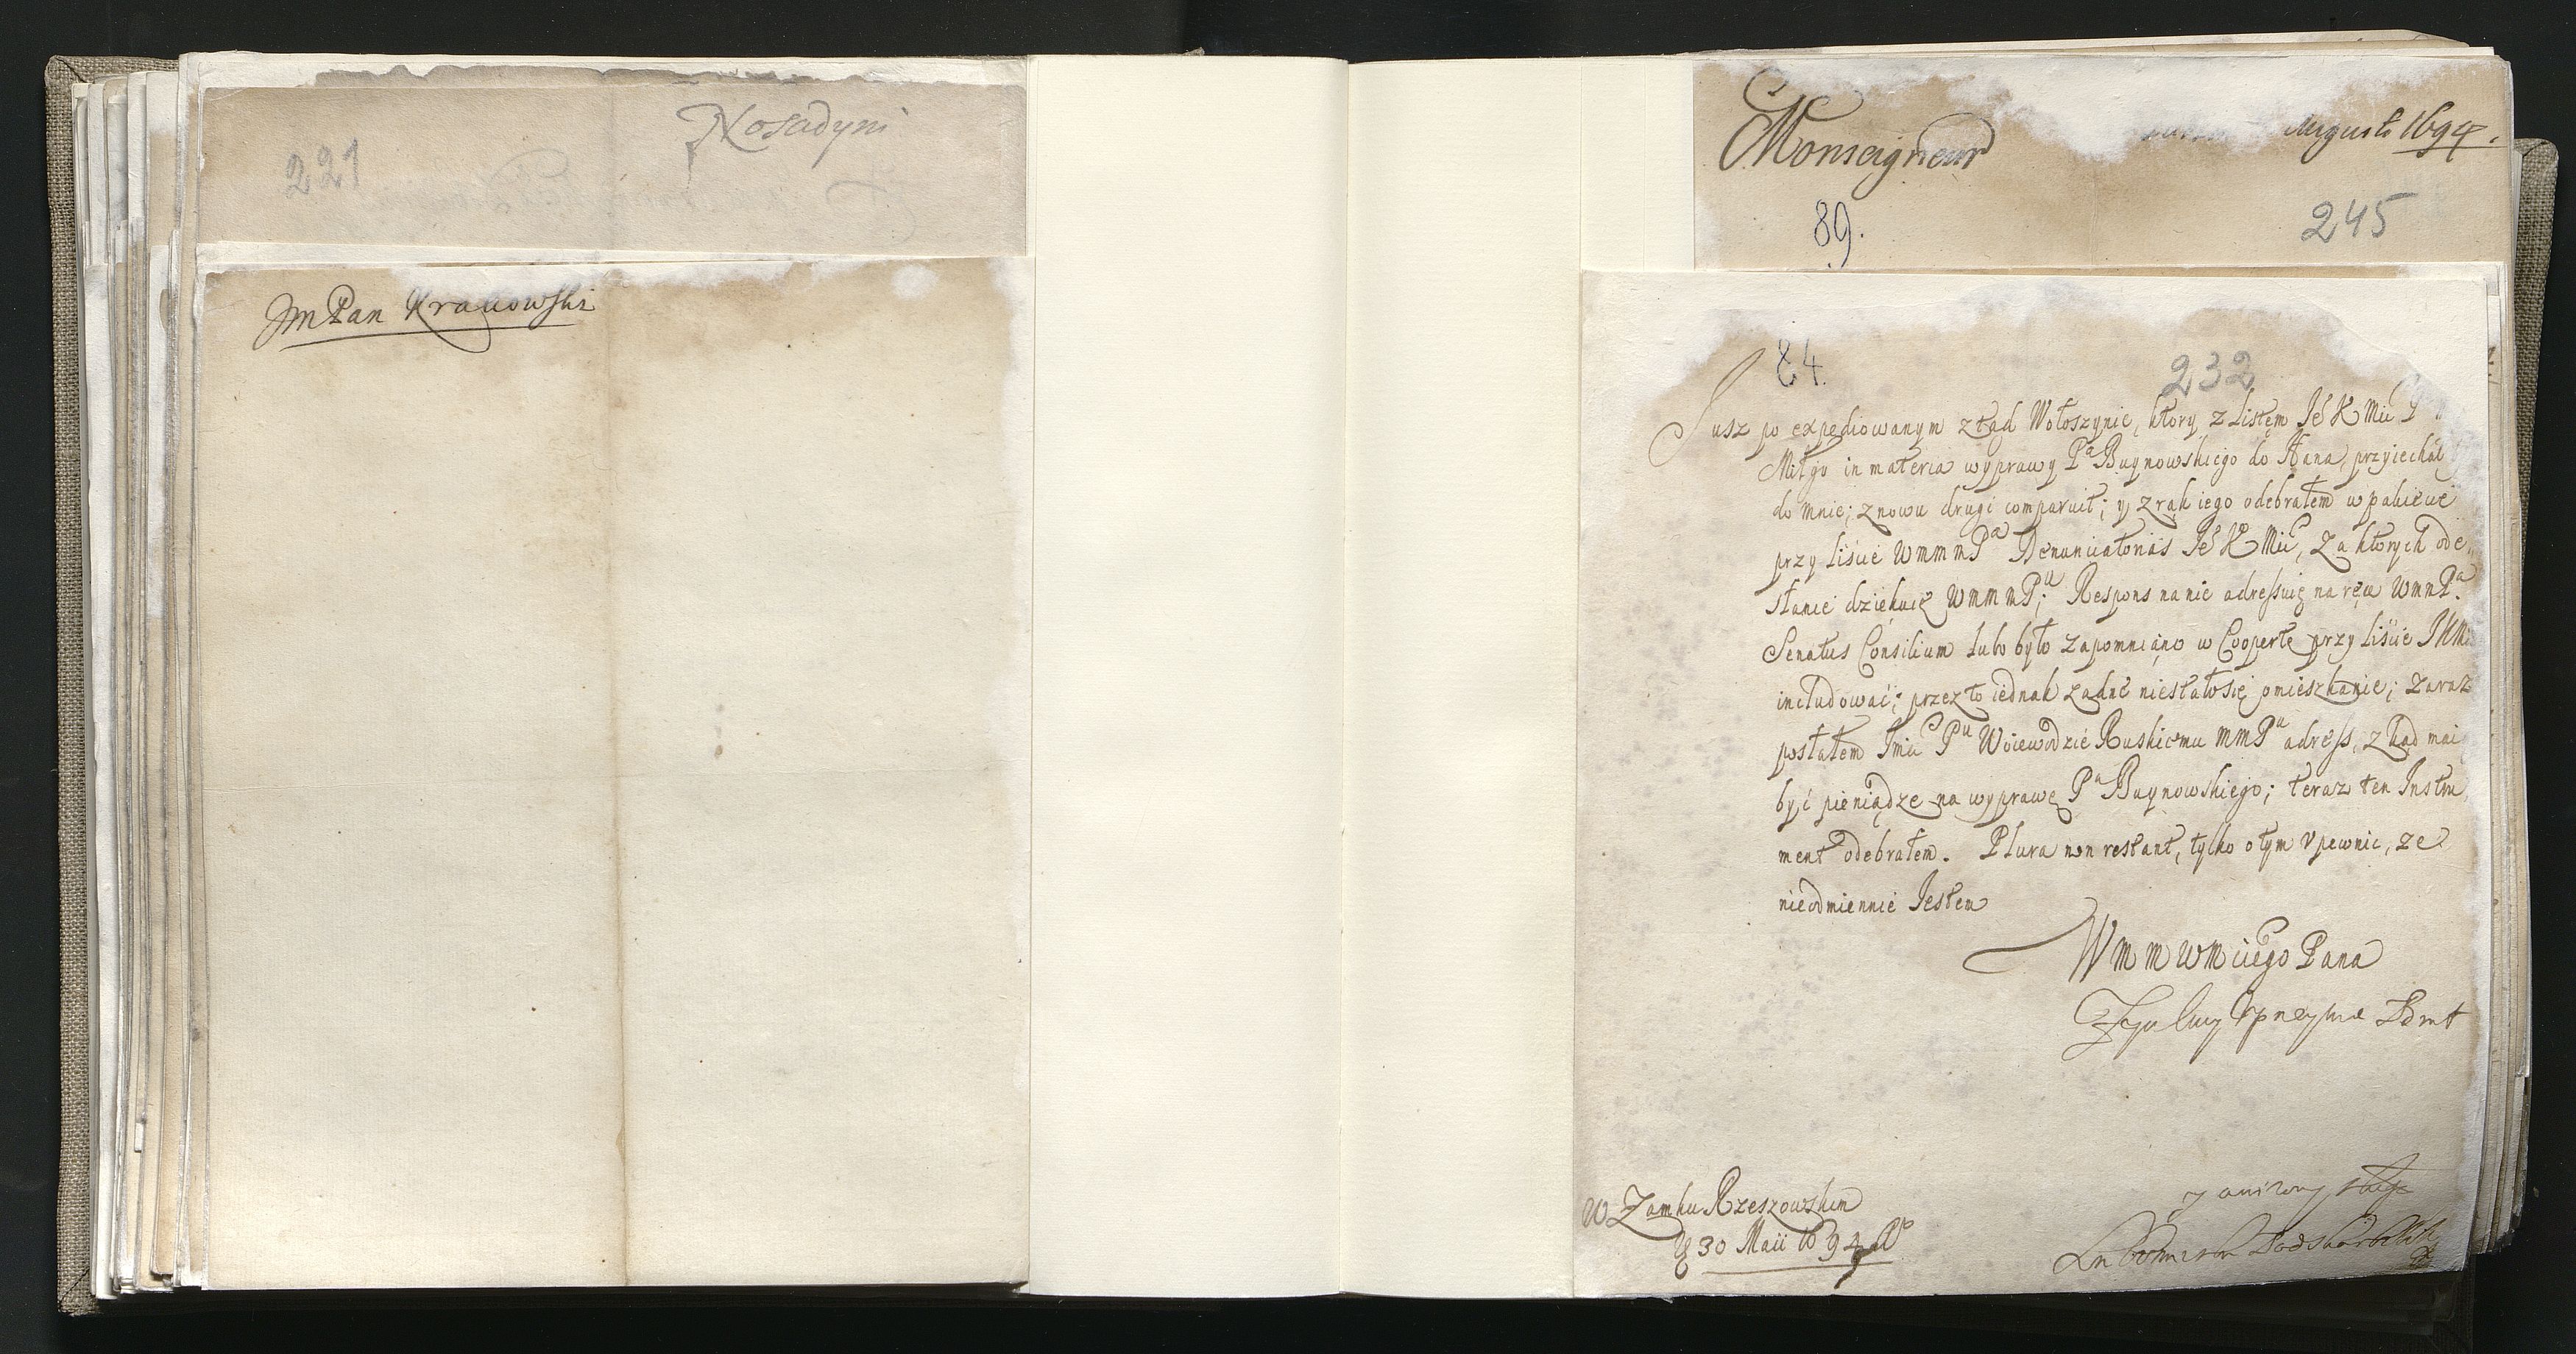 Nosadyni
221
Jm Pan Krakowski
Monseigneur
Augusti 1694.
89.
245
84.
232
Jusz po expediowanym ztąd Wołoszynie, ktory z listem Je⁰ K Mci P
Miłgo in materia wyprawy Pᵃ Buynowskiego do Hana, przyiechał
do mnie; znowu drugi comparuit; y z rąk iego odebrałem w pakiecie
przy liście WmmmPᵃ Denunciatorias Je⁰ K Mci, za ktorych ode,
słanie dziękuię WmmmPᵘ; Respons na nie adressuię na ręce WmmPᵃ.
Senatus Consilium lubo było zapomniano w Coopertę przy liście JKM
includować; przez to iednak zadne niestało się omieszkanie; zaraz
posłałem Jmci Pᵘ Woiewodzie Ruskiemu MMPᵘ adress, zkąd mai
być pieniądze na wyprawę Pᵃ Buynowskiego; teraz ten Instru,
ment odebrałem. Plura non restant, tylko o tym Vpewnic, ze
nieodmiennie Jestem
Wmm WMciego Pana
Zyczliwy Vprzeymie Brat
y unizony sługa
W Zamku Rzeszowskim
30 Maii 1694